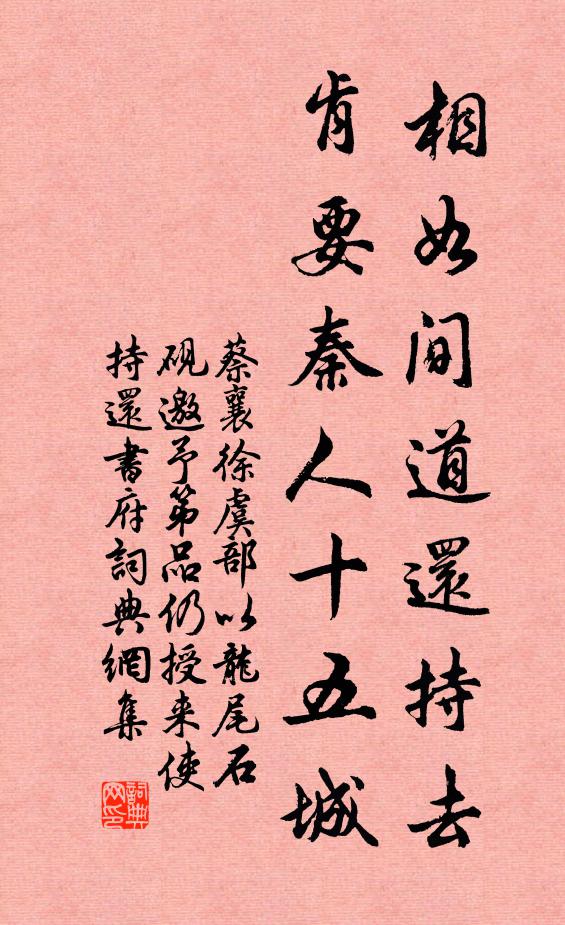 相如間道還持去
肯要秦人十五城
蔡襄徐虞部以龍尾石
硯邀予第品仍授来使
持還書府詞典網集
詞典网印